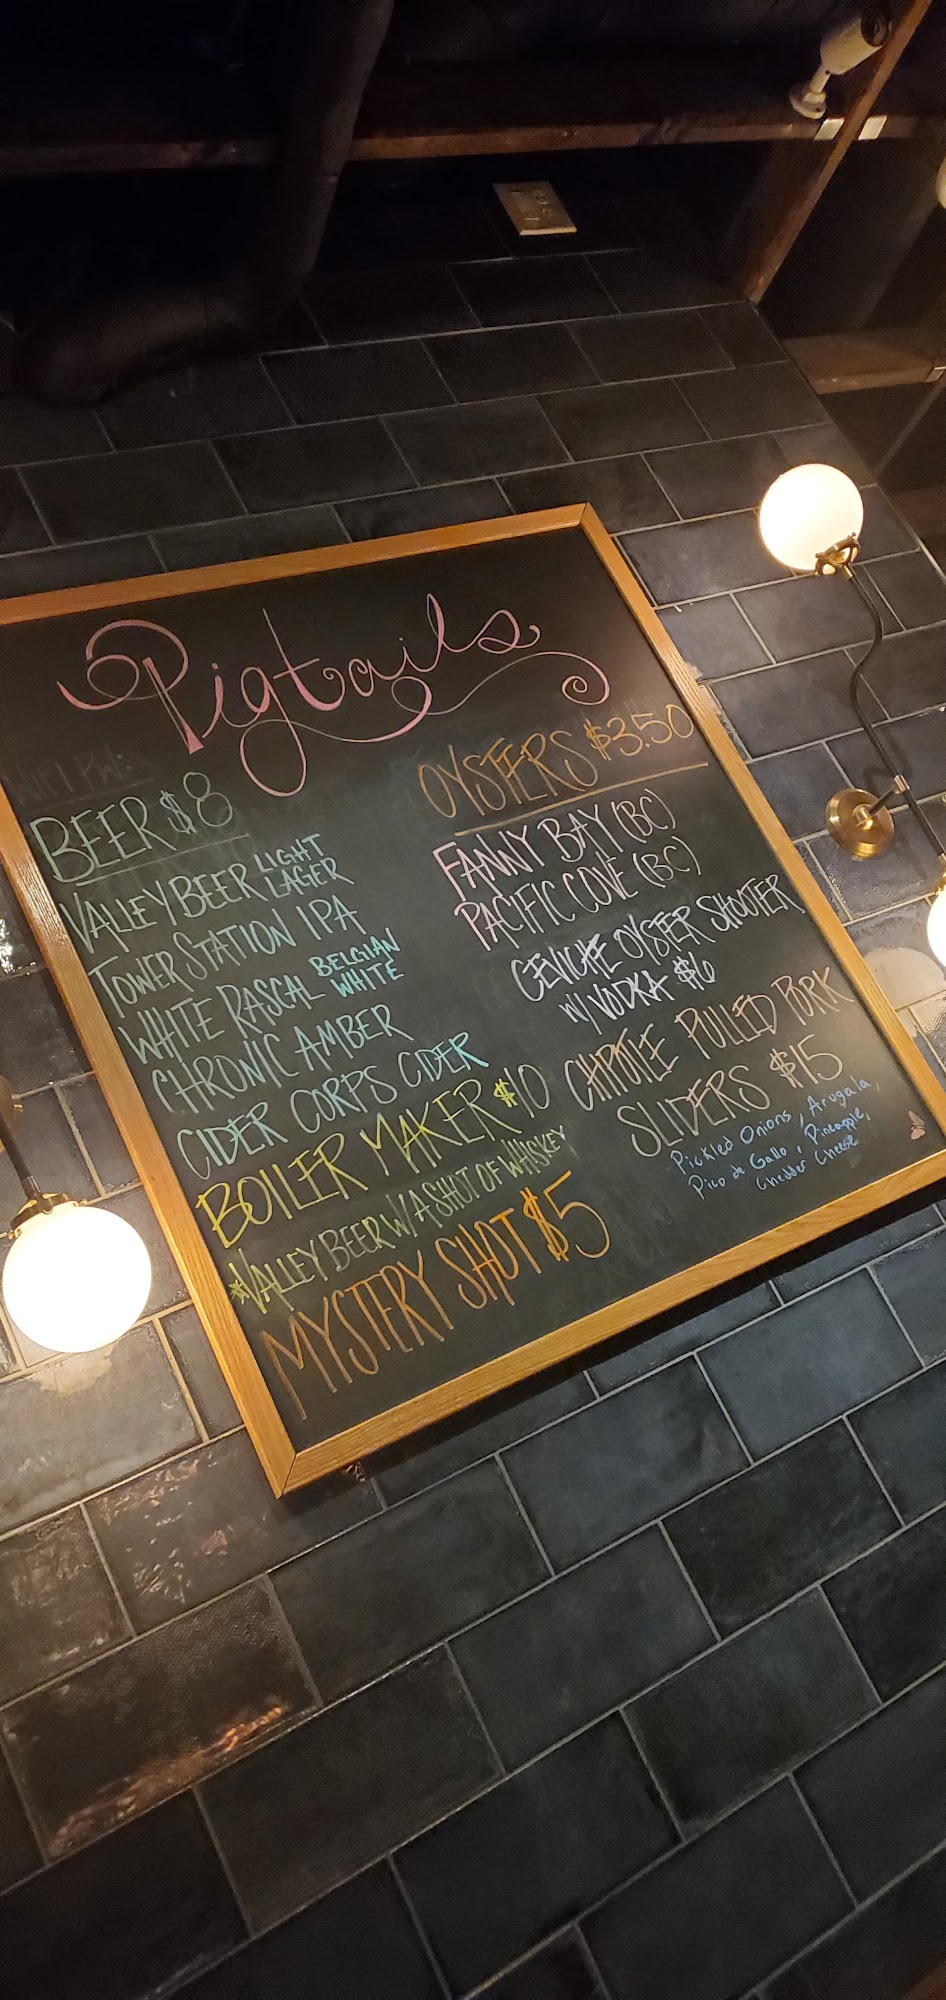 Pigtails
WIFI PW:
BEER $8
VALLEY BEER LIGHT LAGER
TOWER STATION IPA
WHITE RASCAL BELGIAN WHITE
CHRONIC AMBER
CIDER CORPS CIDER
BOILER MAKER $10
*VALLEY BEER W/A SHOT OF WHISKEY
MYSTERY SHOT $5
OYSTERS $3.50
FANNY BAY (BC)
PACIFIC COVE (BC)
CEVICHE OYSTER SHOOTER
W/ VODKA $6
CHIPOTLE PULLED PORK
SLIDERS $15
-Pickled Onions, Arugala,
Pico de Gallo, Pineapple,
Chedder Cheese